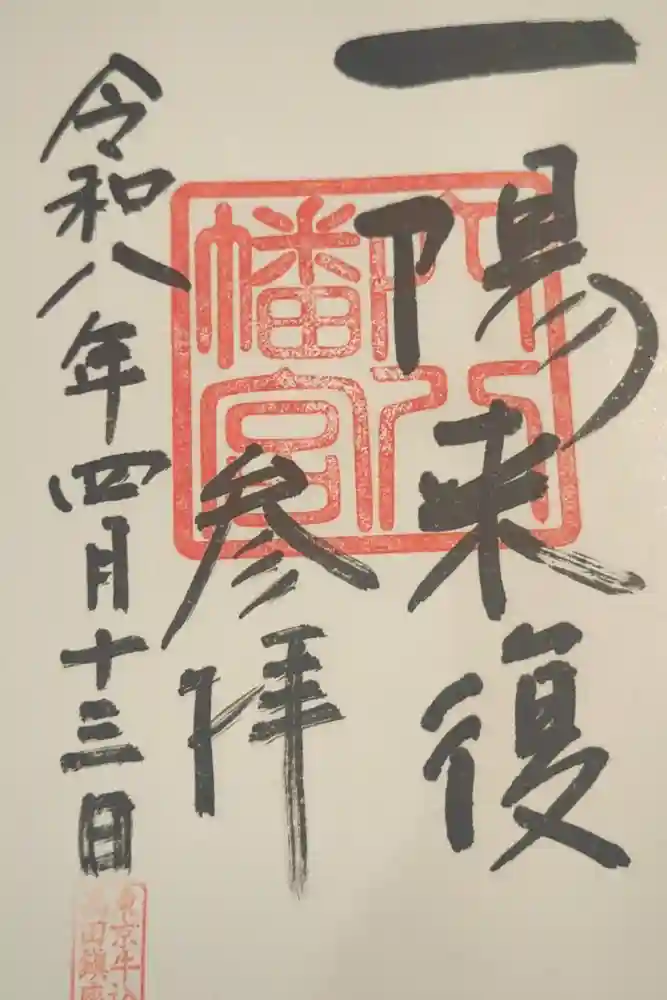 一陽来復
穴八
幡宮
参拝
令和八年四月十三日
東京牛込
高田鎮座